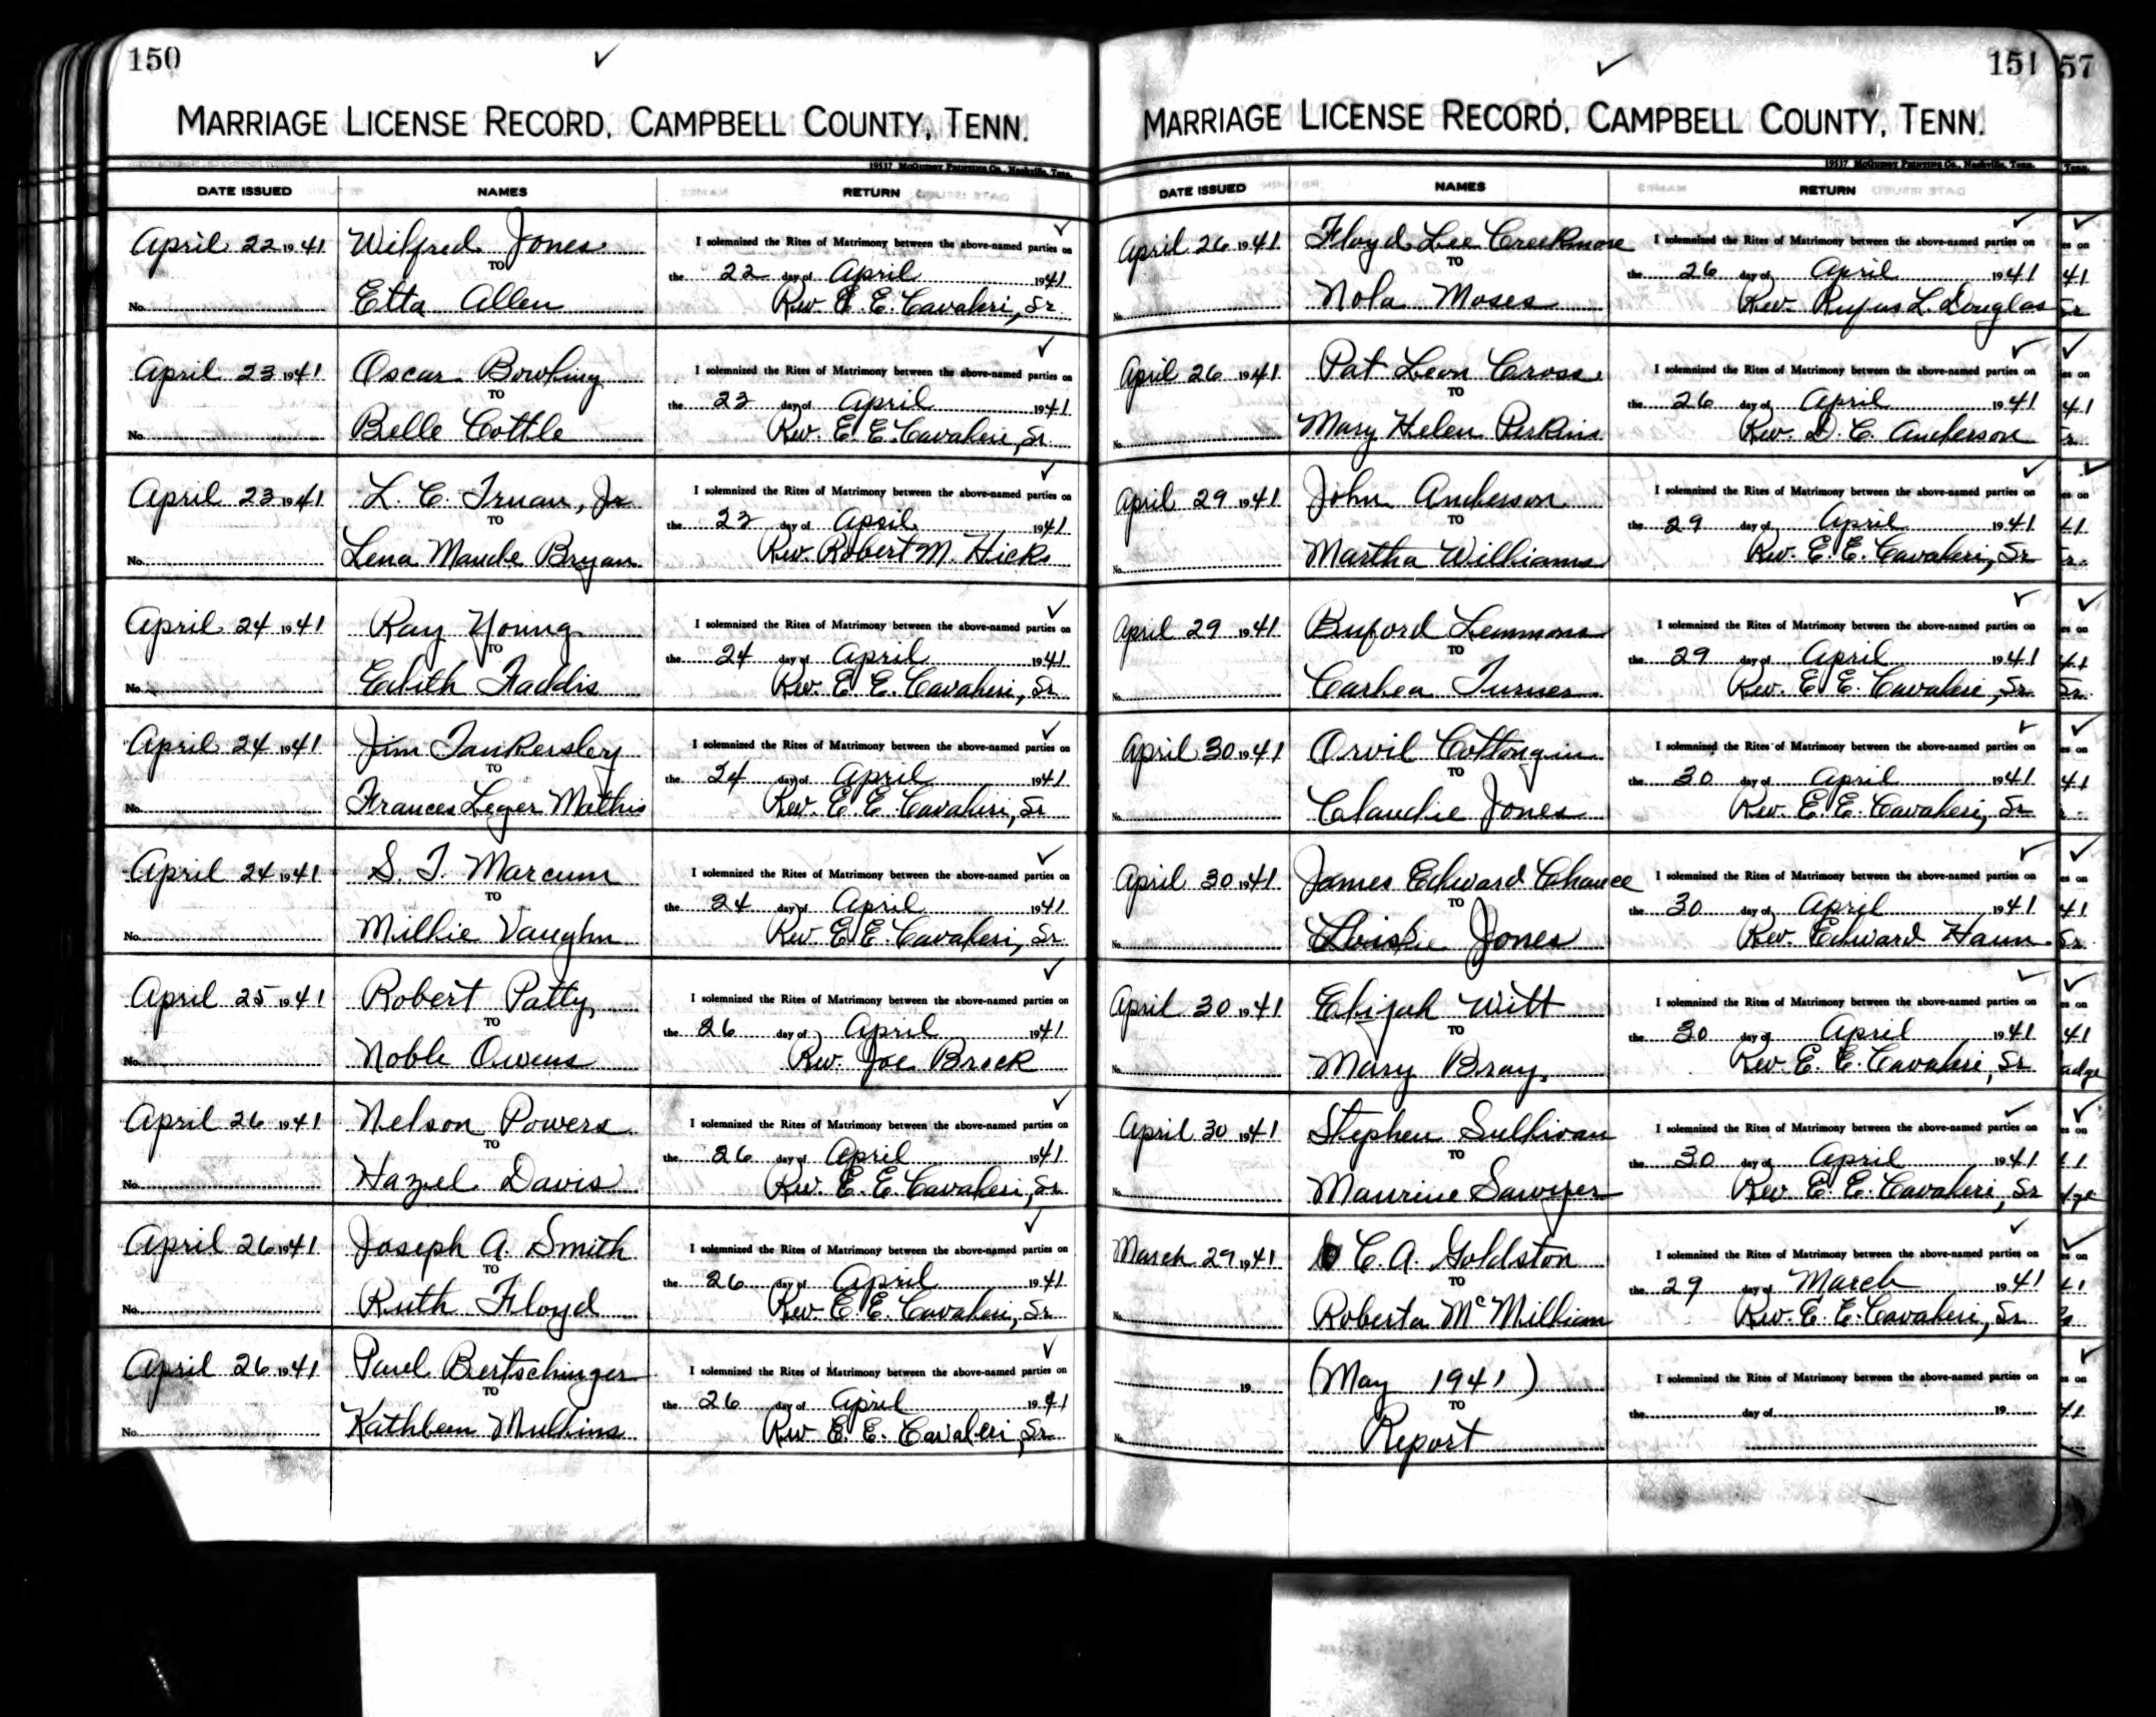 150
MARRIAGE LICENSE RECORD, CAMPBELL COUNTY, TENN.
19517 McQuiddy Printing Co., Nashville, Tenn.
DATE ISSUED NAMES RETURN
April 22 1941 Wilfred Jones I solemnized the Rites of Matrimony between the above-named parties on
TO the 22 day of April 1941
No. Etta Allen Rev. E. E. Cavaleri, Sr
April 23 1941 Oscar Bowling I solemnized the Rites of Matrimony between the above-named parties on
TO the 23 day of April 1941
No. Belle Cottle Rev. E. E. Cavaleri, Sr.
April 23 1941 L. C. Truan, Jr I solemnized the Rites of Matrimony between the above-named parties on
TO the 23 day of April 1941
No. Lena Maude Bryan Rev. Robert M. Hicks
April 24 1941 Ray Young I solemnized the Rites of Matrimony between the above-named parties on
TO the 24 day of April 1941
No. Edith Faddis Rev. E. E. Cavaleri, Sr.
April 24 1941 Jim Tankersley I solemnized the Rites of Matrimony between the above-named parties on
TO the 24 day of April 1941
No. Frances Leger Mathis Rev. E. E. Cavaleri, Sr
April 24 1941 S. T. Marcum I solemnized the Rites of Matrimony between the above-named parties on
TO the 24 day of April 1941
No. Millie Vaughn Rev. E. E. Cavaleri, Sr.
April 25 1941 Robert Patty I solemnized the Rites of Matrimony between the above-named parties on
TO the 26 day of April 1941
No. Noble Owens Rev. Joe Brock
April 26 1941 Nelson Powers I solemnized the Rites of Matrimony between the above-named parties on
TO the 26 day of April 1941
No. Hazel Davis Rev. E. E. Cavaleri, Sr
April 26 1941 Joseph A. Smith I solemnized the Rites of Matrimony between the above-named parties on
TO the 26 day of April 1941
No. Ruth Floyd Rev. E. E. Cavaleri, Sr
April 26 1941 Paul Bertschinger I solemnized the Rites of Matrimony between the above-named parties on
TO the 26 day of April 1941
No. Kathleen Mullins Rev E. E. Cavaleri, Sr.
151
MARRIAGE LICENSE RECORD, CAMPBELL COUNTY, TENN.
19517 McQuiddy Printing Co., Nashville, Tenn.
DATE ISSUED NAMES RETURN
April 26 1941 Floyd Lee Creekmore I solemnized the Rites of Matrimony between the above-named parties on
TO the 26 day of April 1941
No. Nola Moses Rev. Rufus L. Douglas
April 26 1941 Pat Leon Cross I solemnized the Rites of Matrimony between the above-named parties on
TO the 26 day of April 1941
No. Mary Helen Perkins Rev. D. C. Anderson
April 29 1941 John Anderson I solemnized the Rites of Matrimony between the above-named parties on
TO the 29 day of April 1941
No. Martha Williams Rev. E. E. Cavaleri, Sr
April 29 1941 Buford Lemmons I solemnized the Rites of Matrimony between the above-named parties on
TO the 29 day of April 1941
No. Carlea Turner Rev. E. E. Cavaleri, Sr.
April 30 1941 Orvil Cottongim I solemnized the Rites of Matrimony between the above-named parties on
TO the 30 day of April 1941
No. Claudie Jones Rev. E. E. Cavaleri, Sr
April 30 1941 James Edward Chance I solemnized the Rites of Matrimony between the above-named parties on
TO the 30 day of April 1941
No. Jones Rev. Edward Haun
April 30 1941 Elijah Witt I solemnized the Rites of Matrimony between the above-named parties on
TO the 30 day of April 1941
No. Mary Bray Rev. E. E. Cavaleri, Sr
April 30 1941 Stephen Sullivan I solemnized the Rites of Matrimony between the above-named parties on
TO the 30 day of April 1941
No. Maurine Sawyer Rev E. E. Cavaleri, Sr
March 29 1941 C. A. Goldston I solemnized the Rites of Matrimony between the above-named parties on
TO the 29 day of March 1941
No. Roberta McMillian Rev. E. E. Cavaleri, Sr
19 (May 1941) I solemnized the Rites of Matrimony between the above-named parties on
TO the day of 19
No. Report
57